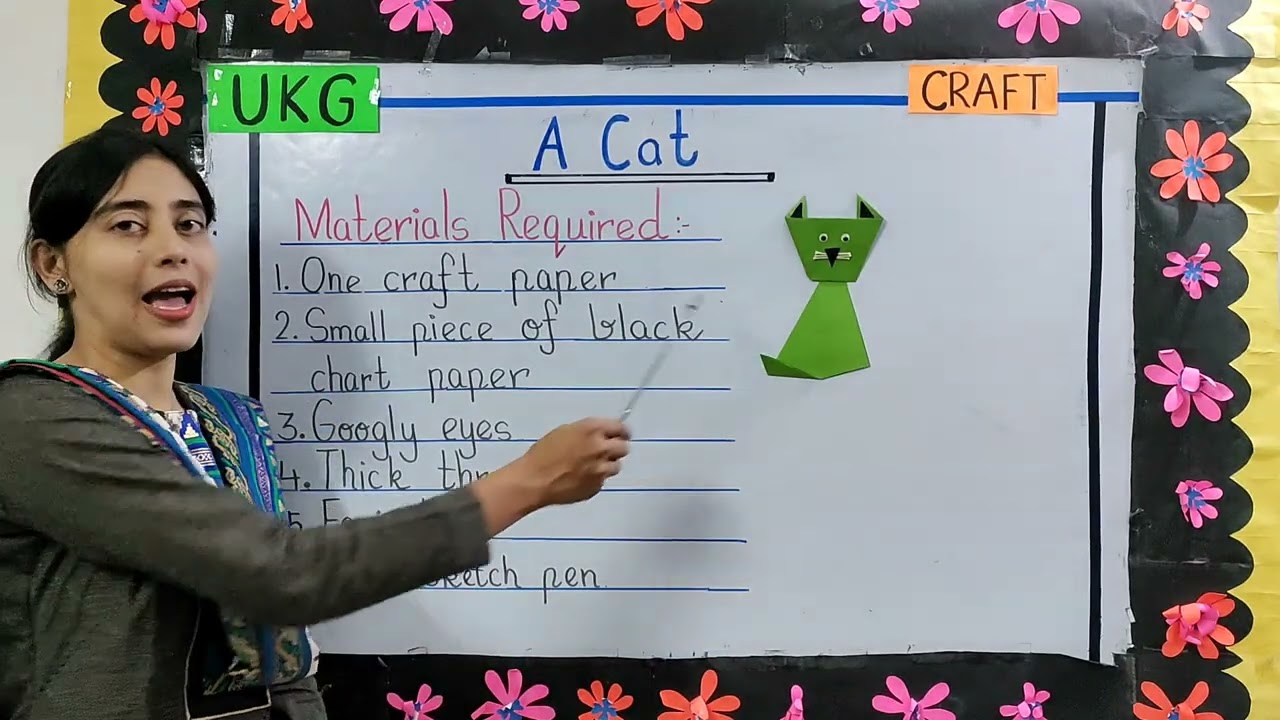 UKG
CRAFT
A Cat
Materials Required:-
1. One craft paper
2. Small piece of black
chart paper
3. Googly eyes
4. Thick
5.
pen